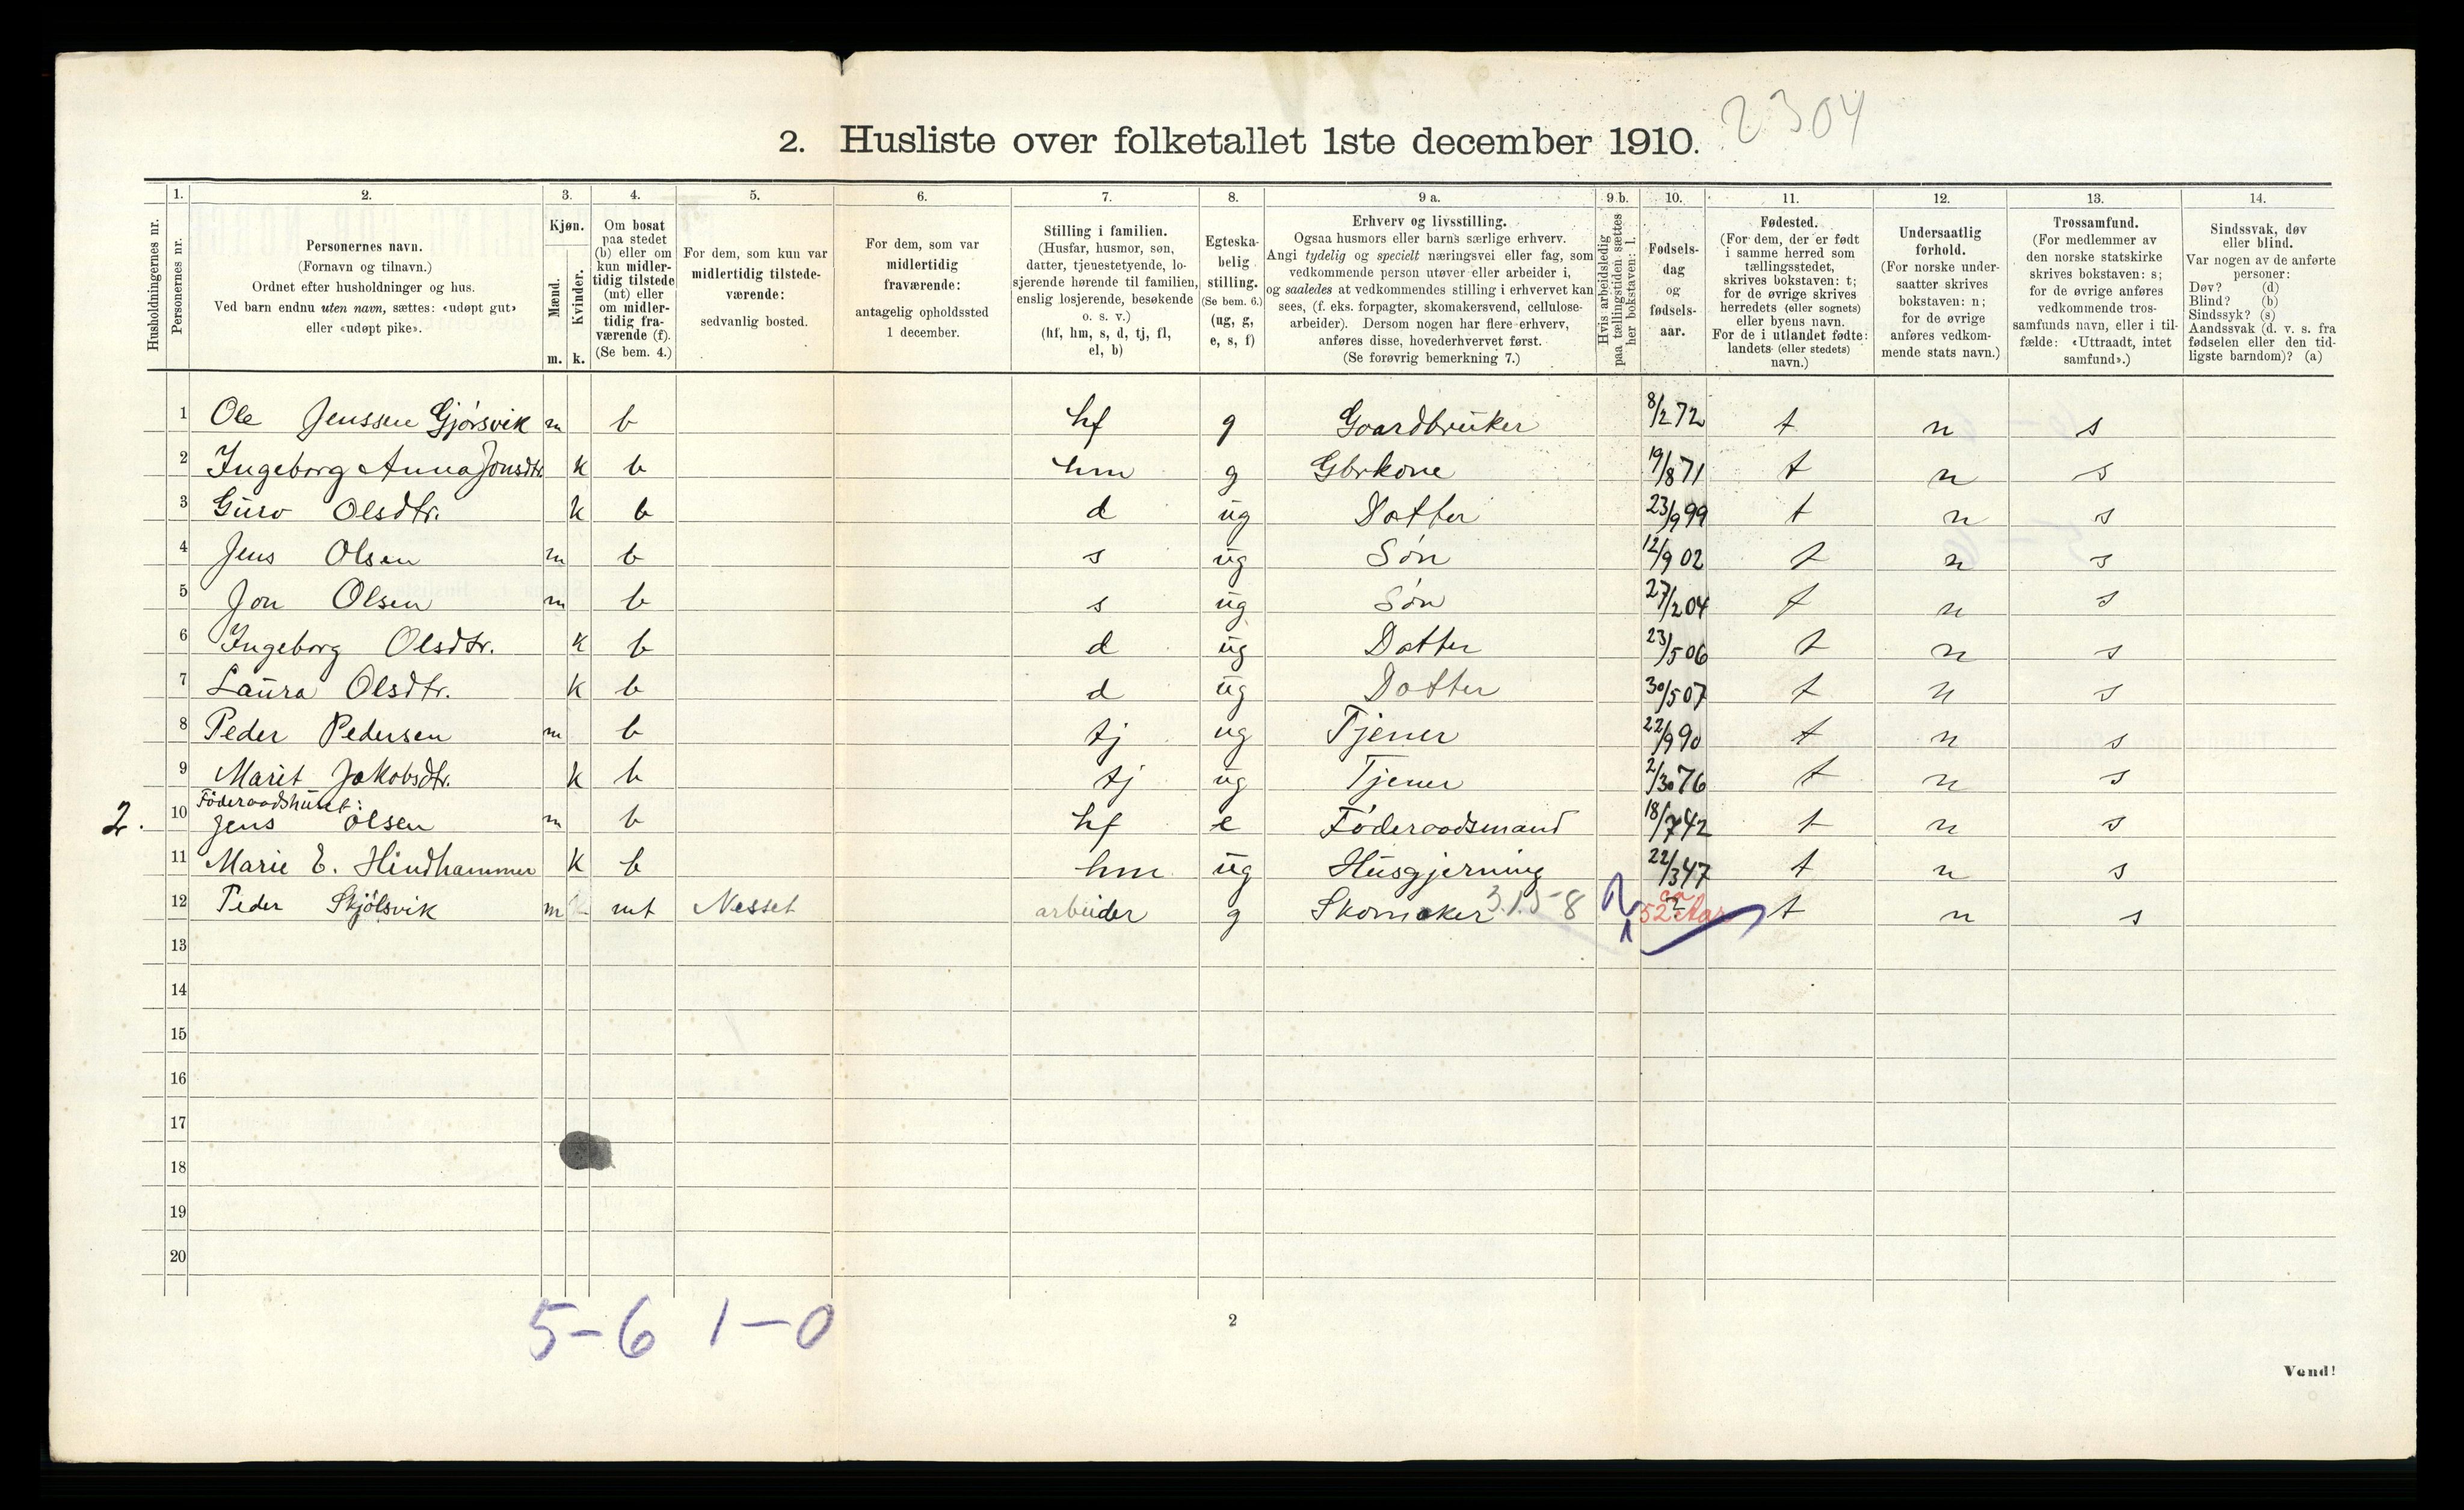 2. Husliste over folketallet 1ste december 1910. 2304
Husholdningernes nr.
1. Personernes nr.
2. Personernes navn.
(Fornavn og tilnavn.)
Ordnet efter husholdninger og hus.
Ved barn endnu uten navn, sættes: «udøpt gut»
eller «udøpt pike».
3. Kjøn.
Mænd. Kvinder.
m. k.
4. Om bosat
paa stedet
(b) eller om
kun midler-
tidig tilstede
(mt) eller
om midler-
tidig fra-
værende (f).
(Se bem. 4.)
5. For dem, som kun var
midlertidig tilstede-
værende:
sedvanlig bosted.
6. For dem, som var
midlertidig
fraværende:
antagelig opholdssted
1 december.
7. Stilling i familien.
(Husfar, husmor, søn,
datter, tjenestetyende, lo-
sjerende hørende til familien,
enslig losjerende, besøkende
o. s. v.)
(hf, hm, s, d, tj, fl,
el, b)
8. Egteska-
belig
stilling.
(Se bem. 6.)
(ug, g,
e, s, f)
9 a. Erhverv og livsstilling.
Ogsaa husmors eller barns særlige erhverv.
Angi tydelig og specielt næringsvei eller fag, som
vedkommende person utøver eller arbeider i,
og saaledes at vedkommendes stilling i erhvervet kan
sees, (f. eks. forpagter, skomakersvend, cellulose-
arbeider). Dersom nogen har flere erhverv,
anføres disse, hovederhvervet først.
(Se forøvrig bemerkning 7.)
9 b. Hvis arbeidsledig
paa tællingstiden sættes
her bokstaven: l.
10. Fødsels-
dag
og
fødsels-
aar.
11. Fødested.
(For dem, der er født
i samme herred som
tællingsstedet,
skrives bokstaven: t;
for de øvrige skrives
herredets (eller sognets)
eller byens navn.
For de i utlandet fødte:
landets (eller stedets)
navn.)
12. Undersaatlig
forhold.
(For norske under-
saatter skrives
bokstaven: n;
for de øvrige
anføres vedkom-
mende stats navn.)
13. Trossamfund.
(For medlemmer av
den norske statskirke
skrives bokstaven: s;
for de øvrige anføres
vedkommende tros-
samfunds navn, eller i til-
fælde: «Uttraadt, intet
samfund».)
14. Sindssvak, døv
eller blind.
Var nogen av de anførte
personer:
Døv? (d)
Blind? (b)
Sindssyk? (s)
Aandssvak (d. v. s. fra
fødselen eller den tid-
ligste barndom)? (a)
1 Ole Jenssen Gjörsvik m b hf g Gaardbruker 8/2 72 t n s
2 Ingeborg Anna Jonsdtr. k b hm g Gbrkone 19/8 71 t n s
3 Guro Olsdtr. k b d ug Datter 23/9 99 t n s
4 Jens Olsen m b s ug Søn 12/9 02 t n s
5 Jon Olsen m b s ug Søn 27/2 04 t n s
6 Ingeborg Olsdtr. k b d ug Datter 23/5 06 t n s
7 Laura Olsdtr. k b d ug Datter 30/5 07 t n s
8 Peder Pedersen m b tj ug Tjener 22/9 90 t n s
9 Marit Jakobsdtr. k b tj ug Tjener 2/30 76 t n s
Föderaadshuset:
2. 10 Jens Olsen m b hf e Föderaadsmand 18/7 42 t n s
11 Marie E. Hindhammer k b hm ug Husgjerning 22/3 47 t n s
12 Peder Skjölsvik m mt Nesset arbeider g Skomaker 3.1.5-8 ca 52 Aar t n s
13
14
15
16
17
18
19
20
5-6 1-0
2
Vend!